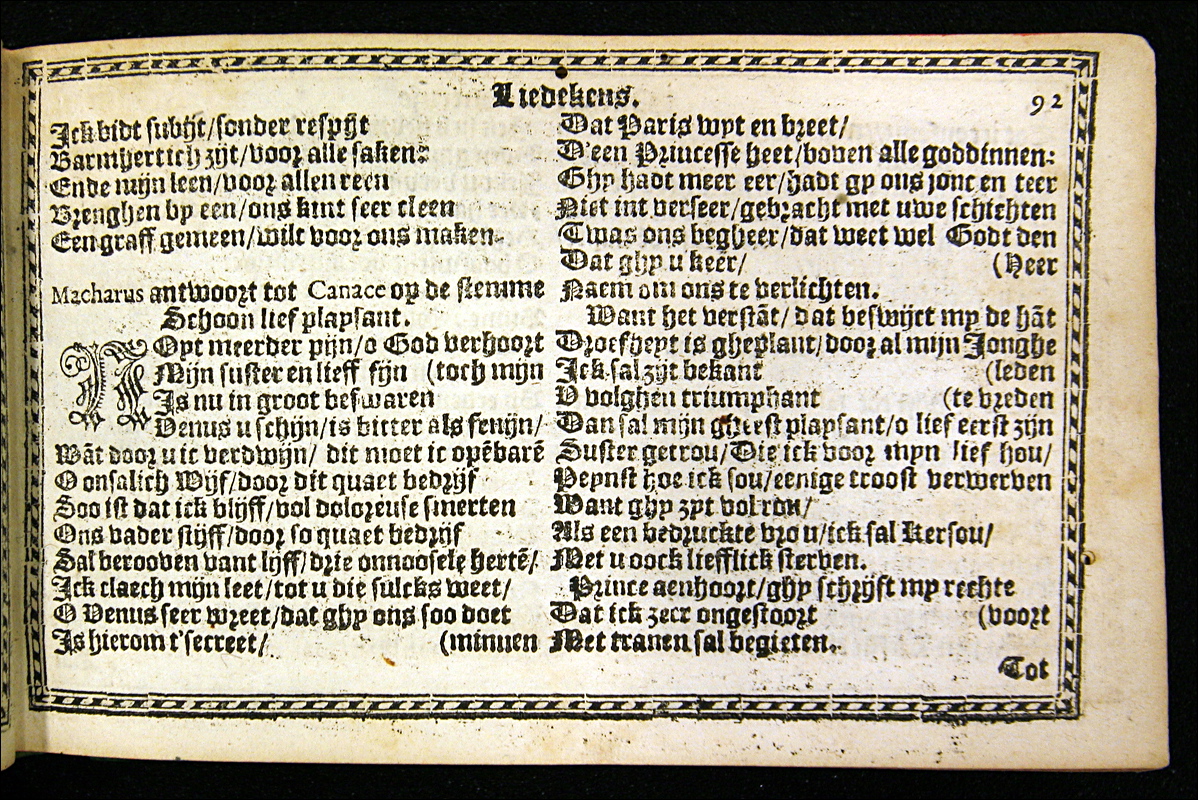 Liedekens.
92
Ick bidt subijt/sonder respijt
Barmhertich zijt/voor alle saken:
Ende mijn leen/voor allen reen
Brenghen by een/ons kint seer cleen
Een graff gemeen/wilt voor ons maken.
Macharus antwoort tot Canace op de stemme
Schoon lief playsant.
Noyt meerder pijn/o God verhoort
Mijn suster en lieff fijn (toch mijn
Is nu in groot beswaren
Venus u schijn/is bitter als fenijn/
Wāt door u ic verdwijn/ dit moet ic opēbarē
O onsalich Wijf/door dit quaet bedrijf
Soo ist dat ick blijff/vol doloreuse smerten
Ons vader stijff/door so quaet bedrijf
Sal berooven vant lijff/drie onnoosele hertē/
Ick claech mijn leet/tot u die sulcks weet/
O Venus seer wreet/dat ghy ons soo doet
Is hierom t'secreet/ (minnen
Dat Paris wyt en breet/
V een Princesse heet/boven alle goddinnen:
Ghy hadt meer eer/hadt gy ons jonc en teer
Niet int verseer/gebracht met uwe schichten
Twas ons begheer/dat weet wel Godt den
Dat ghy u keer/ (Heer
Naem om ons te verlichten.
Want het verstāt/ dat beswijct my de hāt
Droefheyt is gheplant/door al mijn Jonghe
Ick sal zijt bekant (leden
V volghen triumphant (te vreden
Dan sal mijn gheest playsant/o lief eerst zijn
Suster getrou/Die ick voor myn lief hou/
Peynst hoe ick sou/eenige troost verwerven
Want ghy zyt vol rou/
Als een bedruckte vrou/ick sal Kersou/
Met u oock liefflick sterven.
Prince aenhoort/ghy schrijft my rechte
Dat ick zeer ongestoort (voort
Met tranen sal begieten.
Tot